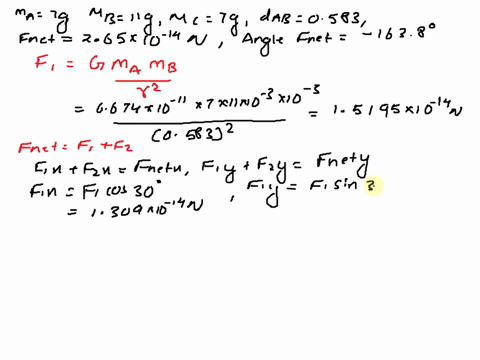 mA = 7g MB = 11g, MC = 7g, dAB = 0.583,
Fnet = 2.65×10^-14 N, Angle Fnet = -163.8°
F1 = G mA mB
r²
= 6.674×10^-11 × 7×11×10^-3×10^-3 = 1.5195×10^-14 N
(0.583)²
Fnet = F1 + F2
F1x + F2x = Fnetx, F1y + F2y = Fnety
F1x = F1 cos 30°, F1y = F1 sin 3
= 1.309×10^-14 N